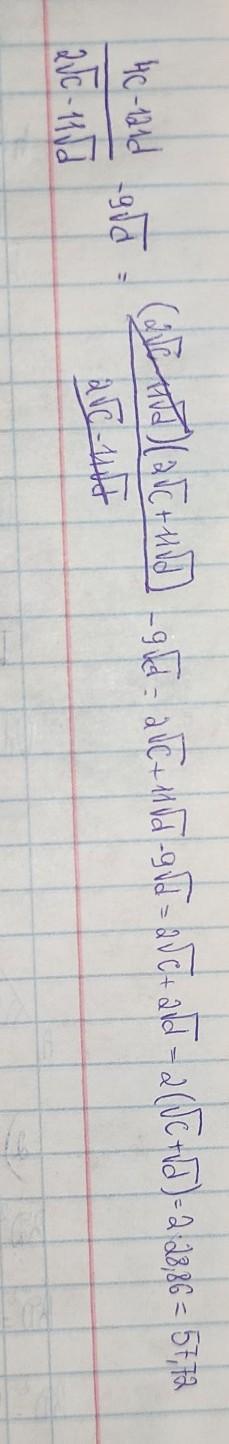 (4c-121d)/(2√c-11√d) -9√d = ((2√c-11√d)(2√c+11√d))/(2√c-11√d) -9√d = 2√c+11√d-9√d = 2√c+2√d = 2(√c+√d) = 2·28,86 = 57,72